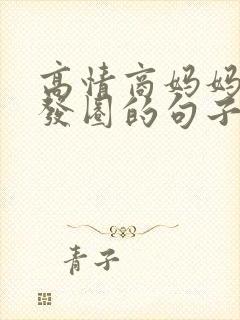 高情商妈妈
發圈的句子
青子